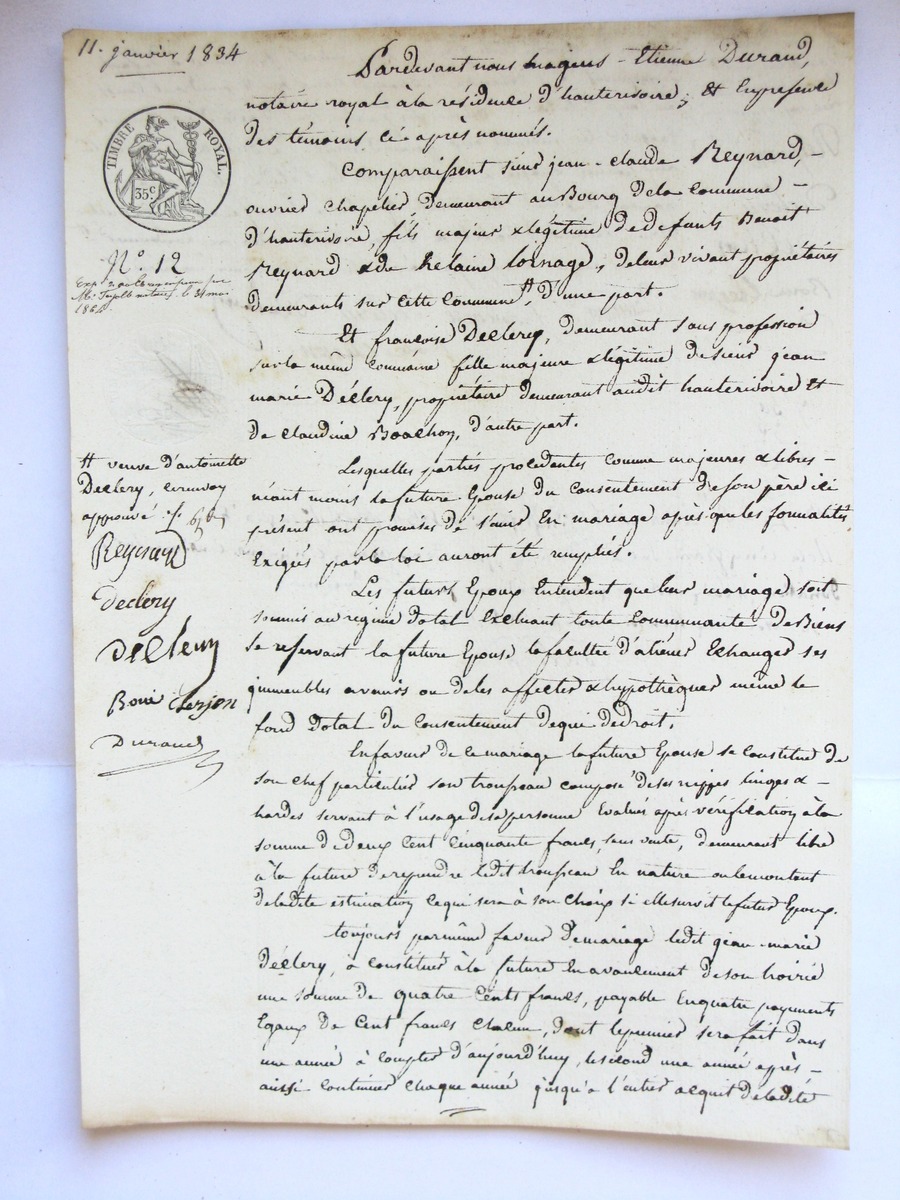 11. janvier 1834
TIMBRE ROYAL.
35c
N.° 12
le 31 mai
1864
Pardevant nous magens - Etienne Durand,
notaire royal à la résidence d'hauterivoire; Et En presence
des témoins ci-après nommés.
Comparaissent sieur jean-claude Reynard, -
ouvrier chapelier demeurant au Bourg de la Commune -
d'hauterivoire, fils majeur & légitime de defunts Benoit
Reynard & de helaine Lornage, de leur vivant propriétaires
demeurants sur cette Commune #, d'une part.
Et françoise Declery, demeurant sans profession
sur la même Commune fille majeure & légitime de sieur jean
marie Déclery, propriétaire demeurant audit hauterivoire Et
de claudine Boachon, d'autre part.
# veuve d'antoinette
Declery, le renvoy
approuvé ./.
Reynard
declery
declery
Durand
Lesquelles parties procédantes comme majeures & libres -
néant moins la future Epouse du consentement de son père ici
présent ont promises de s'unir En mariage après que les formalités
Exigées par la loi auront été remplies.
Les futurs Epoux Entendent que leur mariage soit
soumis au regime dotal Excluant toute Communauté de Biens
Se reservant la future Epouse la faculté d'aliéner Echanger ses
immeubles avenirs ou de les affecter & hypothèquer même le
fond dotal du consentement de qui de droit.
En faveur de ce mariage la future Epouse se constitue de
son chef particulier son trousseau composé de ses nippes linges & -
hardes servant à l'usage de sa personne Evalués après vérification à la
somme de deux Cent Cinquante francs, sans vente, demeurant libre
à la future de reprendre ledit trousseau En nature ou le montant
de ladite estimation ce qui sera à son choix si elle survit le futur Epoux.
toujours par même faveur de mariage ledit jean-marie
Déclery, à constitué à la future En avancement de son hoirié
une somme de quatre Cents francs, payable En quatre payements
Egaux de Cent francs chacun, dont le premier sera fait dans
une année à compter d'aujourd'huy, le second une année après -
aussi continuer chaque année jusqu'à l'entier acquit de ladite